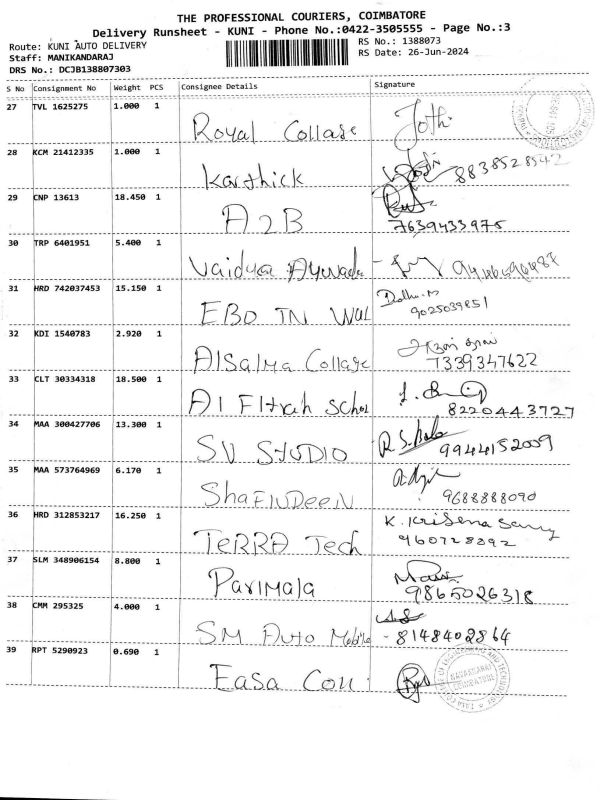 THE PROFESSIONAL COURIERS, COIMBATORE
Delivery Runsheet - KUNI - Phone No.:0422-3505555 - Page No.:3
Route: KUNI AUTO DELIVERY RS No.: 1388073
Staff: MANIKANDARAJ RS Date: 26-Jun-2024
DRS No.: DCJB138807303
S No Consignment No Weight PCS Consignee Details Signature
27 TVL 1625275 1.000 1
Royal Collage Jothi
28 KCM 21412335 1.000 1
Karthick 8838528542
29 CNP 13613 18.450 1
A2B 7639433975
30 TRP 6401951 5.400 1
Vaidya
31 HRD 742037453 15.150 1
EBO TN Wal 9025039851
32 KDI 1540783 2.920 1
AlSalma Collage 7339347622
33 CLT 30334318 18.500 1
Al Fitrah Schol 8220443727
34 MAA 300427706 13.300 1
SV STUDIO 9944152009
35 MAA 573764969 6.170 1
ShaFIUDeeN 9688888090
36 HRD 312853217 16.250 1
TeRRA Tech K. Krisena Samy
960728892
37 SLM 348906154 8.800 1
Parimala 9865026318
38 CMM 295325 4.000 1
SM Auto Mobile - 8148402864
39 RPT 5290923 0.690 1
Easa Coll